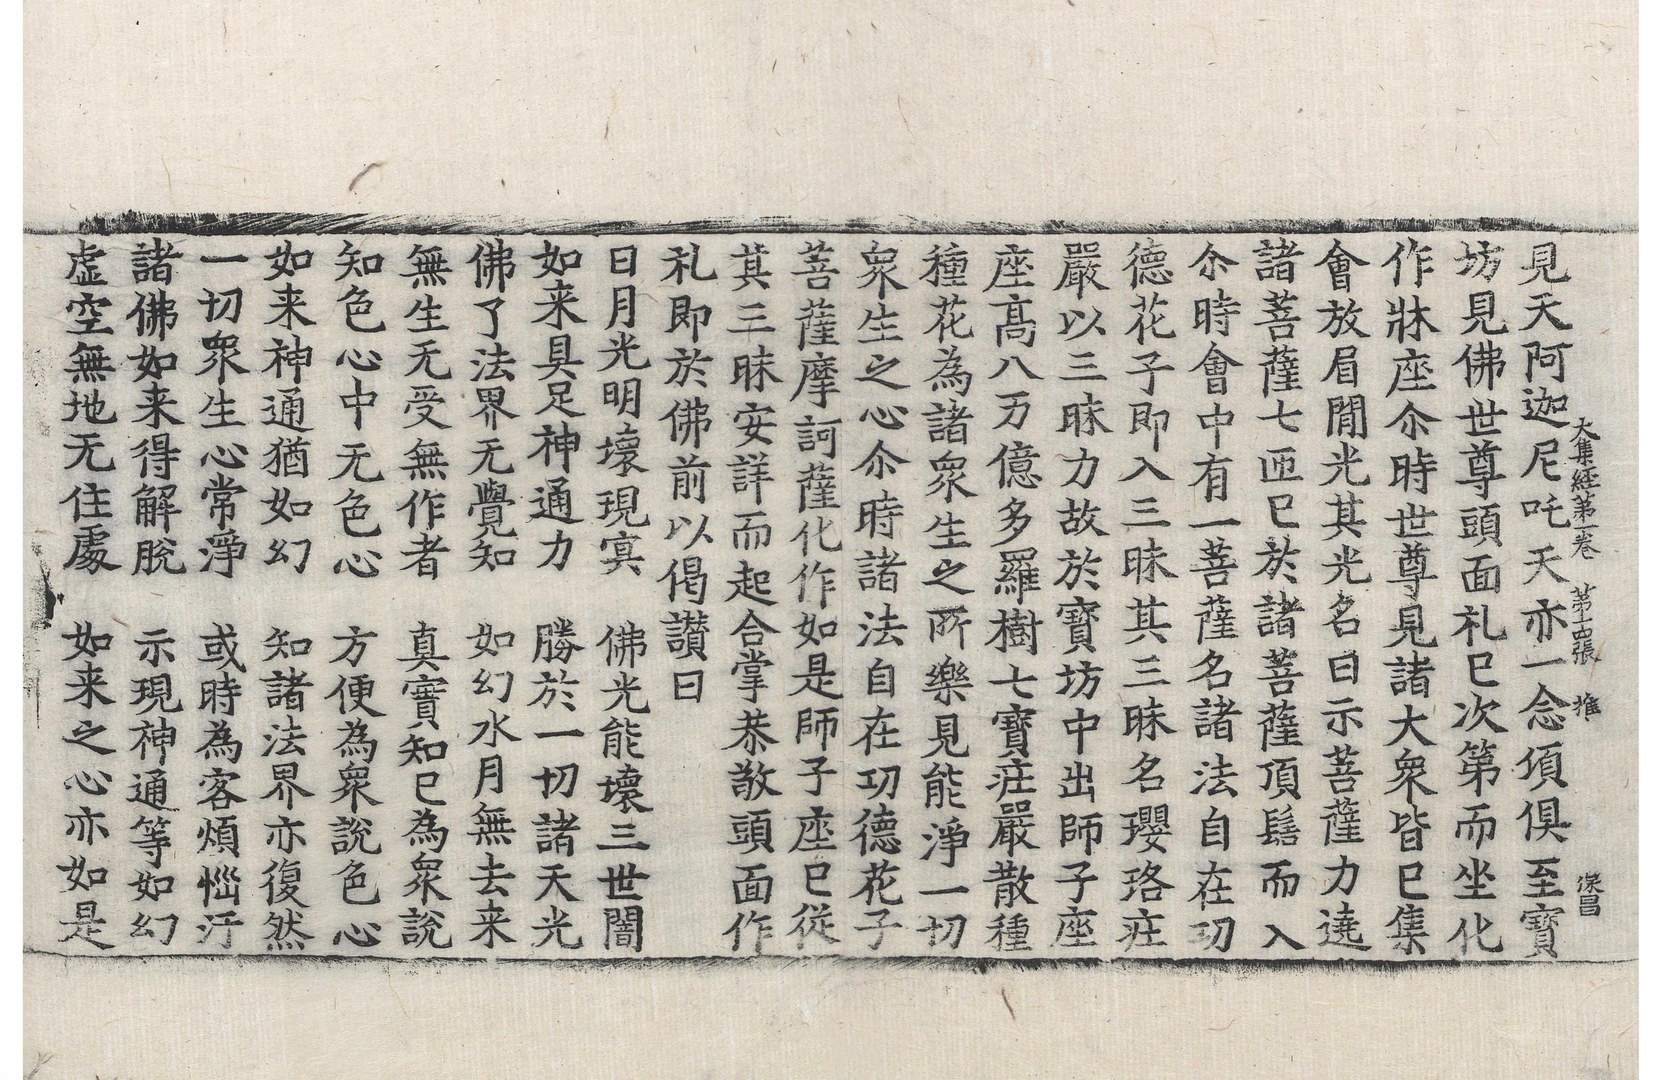 大集經第一卷 第十四張 推 保昌
見天阿迦尼吒天亦一念頃俱至寶
坊見佛世尊頭面礼已次第而坐化
作牀座尒時世尊見諸大衆皆已集
會放眉閒光其光名曰示菩薩力遶
諸菩薩七匝已於諸菩薩頂髻而入
尒時會中有一菩薩名諸法自在功
德花子即入三昧其三昧名瓔珞疘
嚴以三昧力故於寶坊中出師子座
座高八万億多羅樹七寶疘嚴散種
種花為諸衆生之所樂見能淨一切
衆生之心尒時諸法自在功德花子
菩薩摩訶薩化作如是師子座已從
其三昧安詳而起合掌恭敬頭面作
礼即於佛前以偈讃曰
日月光明壞現㝠 佛光能壞三世闇
如来具足神通力 勝於一切諸天光
佛了法界无覺知 如幻水月無去来
無生无受無作者 真實知已為衆說
知色心中无色心 方便為衆說色心
如来神通猶如幻 知諸法界亦復然
一切衆生心常淨 或時為客煩惱汙
諸佛如来得解脫 示現神通等如幻
虛空無地无住處 如来之心亦如是